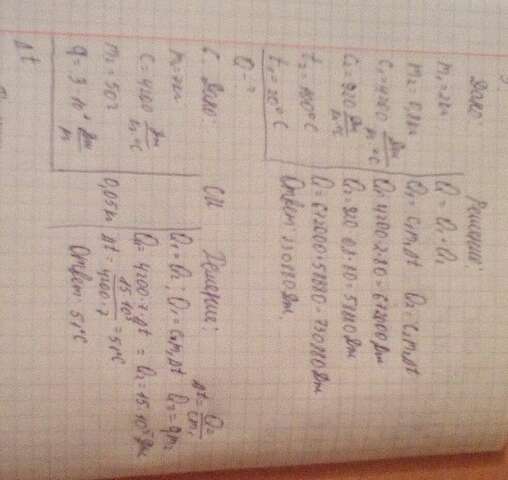 Дано:
m₁=2кг
m₂=0,8кг
c₁=4200 Дж/кг °C
c₂=920 Дж/кг°C
t₂=100°C
t₁=20°C
Q-?
Решение:
Q=Q₁+Q₂
Q₁=c₁m₁Δt Q₂=c₂m₂Δt
Q₁=4200·2·80=672000Дж
Q₂=920·0,8·80=58880Дж
Q=672000+58880=730880Дж
Ответ: 730880Дж.
6. Дано:
c=4200 Дж/кг°C
m₂=50г
Δt
СИ
0,05кг
Решение:
Q₁=Q₂; Q₁=cm₁Δt Q₂=qm₂
Δt=Q₂/cm₁
Q₁=4200·7·Δt=Q₂=15·10⁵Дж
Δt=15·10⁵/4200·7=51°C
Ответ: 51°C